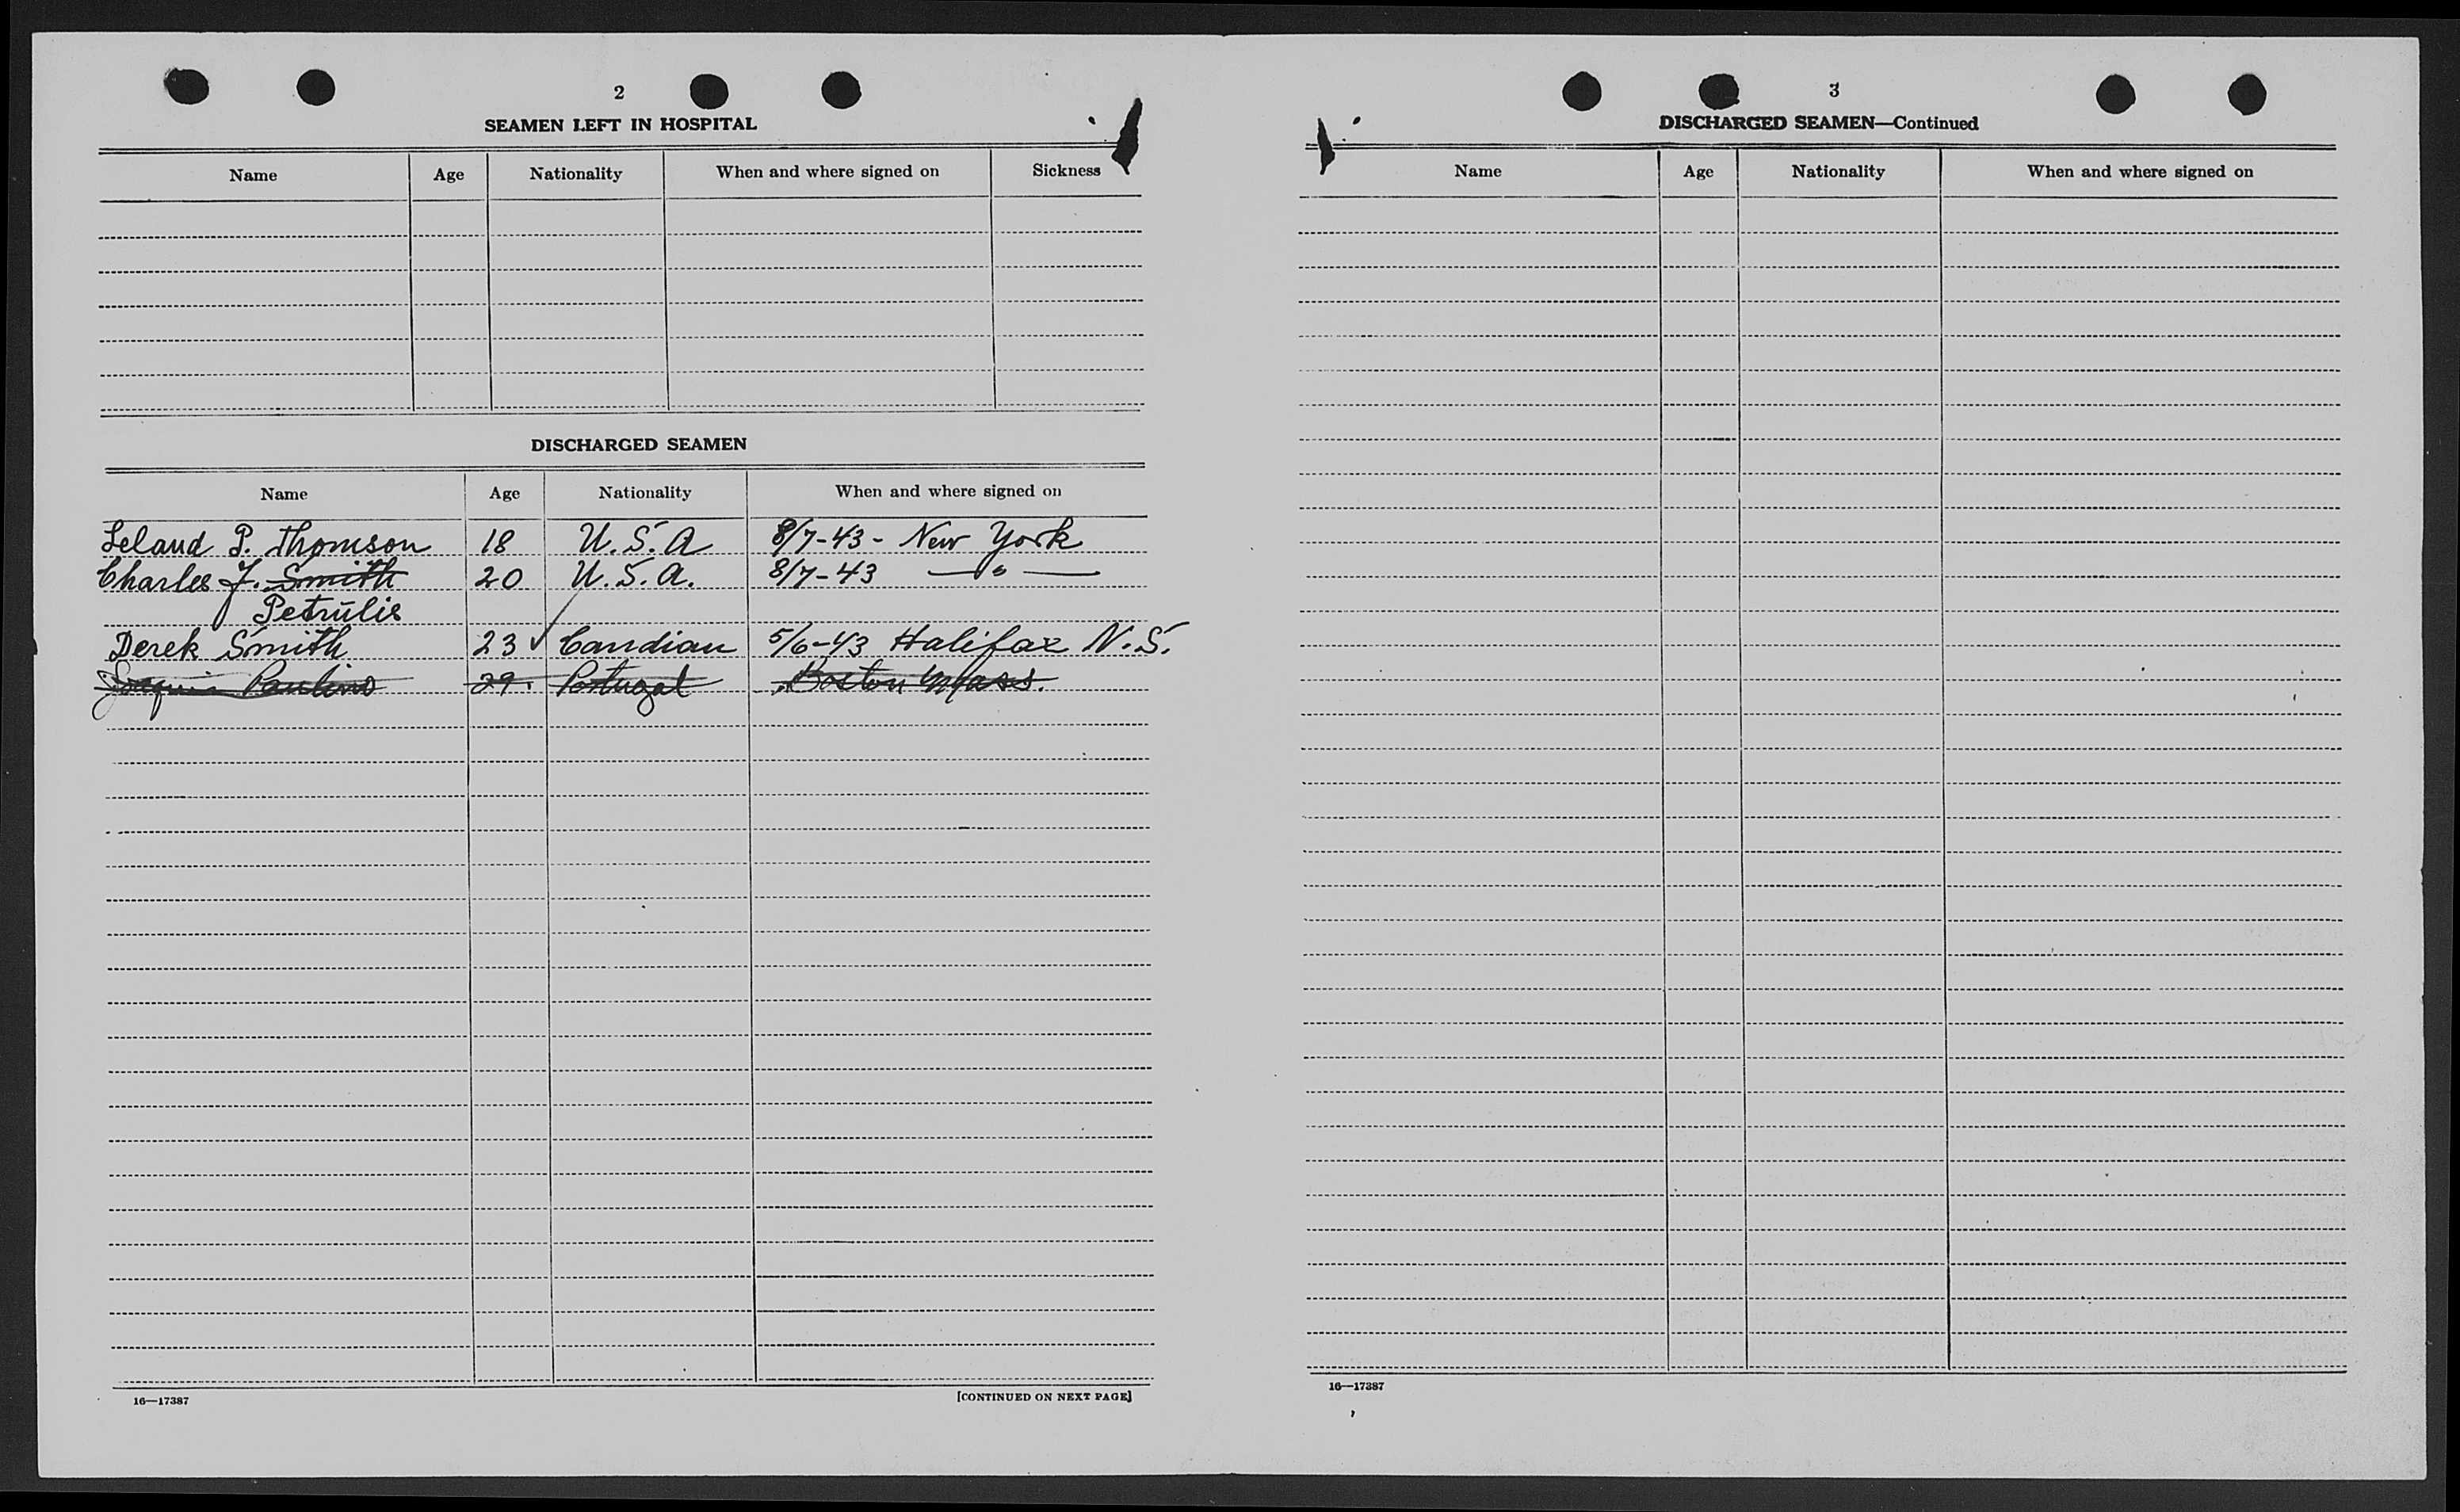 2
SEAMEN LEFT IN HOSPITAL
Name Age Nationality When and where signed on Sickness
DISCHARGED SEAMEN
Name Age Nationality When and where signed on
Leland P. Thomson 18 U.S.A 8/7-43 - New York
Charles J. Smith 20 U.S.A. 8/7-43 —"—
Petrulis
Derek Smith 23 ✓ Candian 5/6-43 Halifax N.S.
Joaquin Paulino 29. Portugal Boston Mass.
16—17387 [CONTINUED ON NEXT PAGE]
3
DISCHARGED SEAMEN—Continued
Name Age Nationality When and where signed on
16—17387